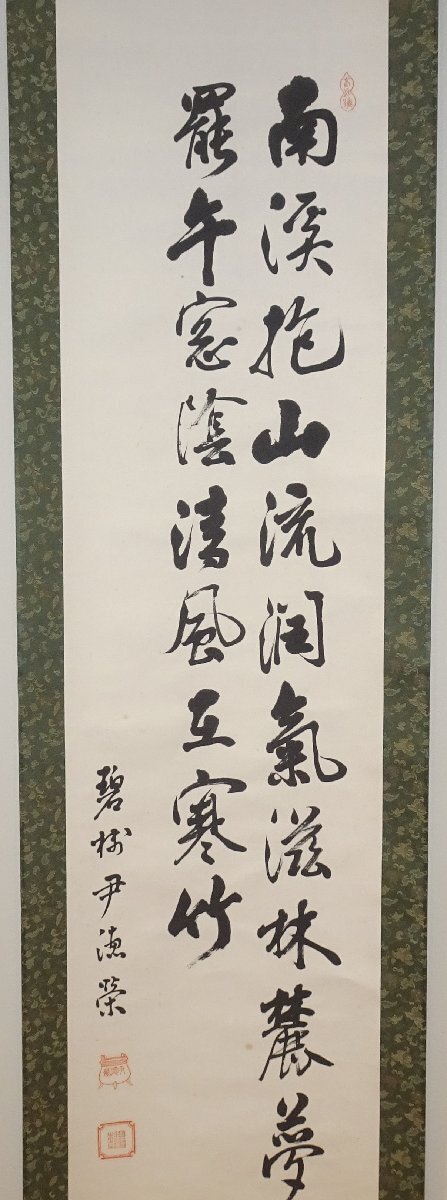 南溪抱山流潤氣滋林麓夢
罷午窓陰清風在寒竹
碧樹尹德榮